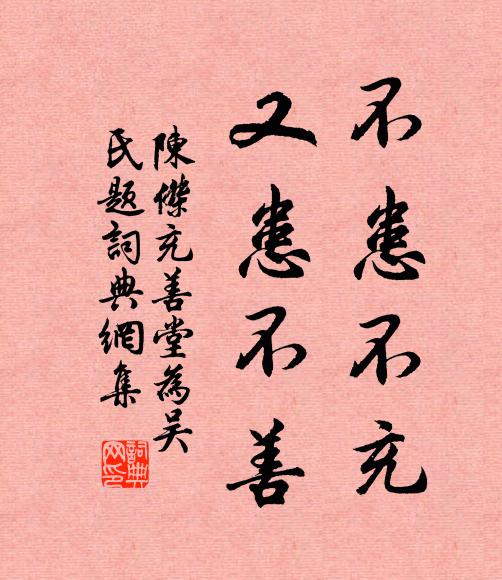 不患不充
又患不善
陳傑充善堂為吳
氏題詞典網集
詞典
网印